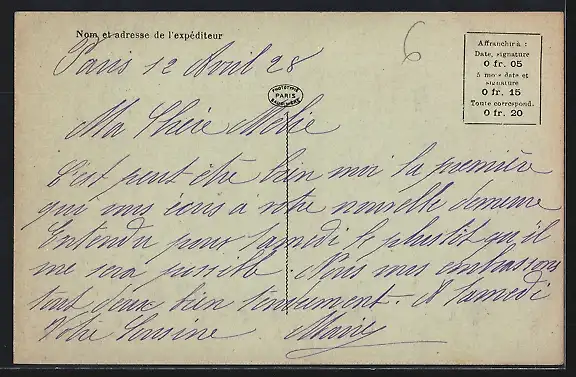 Nom et adresse de l'expéditeur
Paris 12 Avril 28
6
Affranchir à :
Date, signature
0 fr. 05
5 mots date et
signature
0 fr. 15
Toute correspond.
0 fr. 20
PARIS
Ma Chère Mélie
C'est peut être bien moi la première
qui vous écris a votre nouvelle demeure
Entendu pour Samedi le plustôt qu'il
me sera possible. Nous vous embrassons
tout deux bien tendrement. A Samedi
Votre Cousine